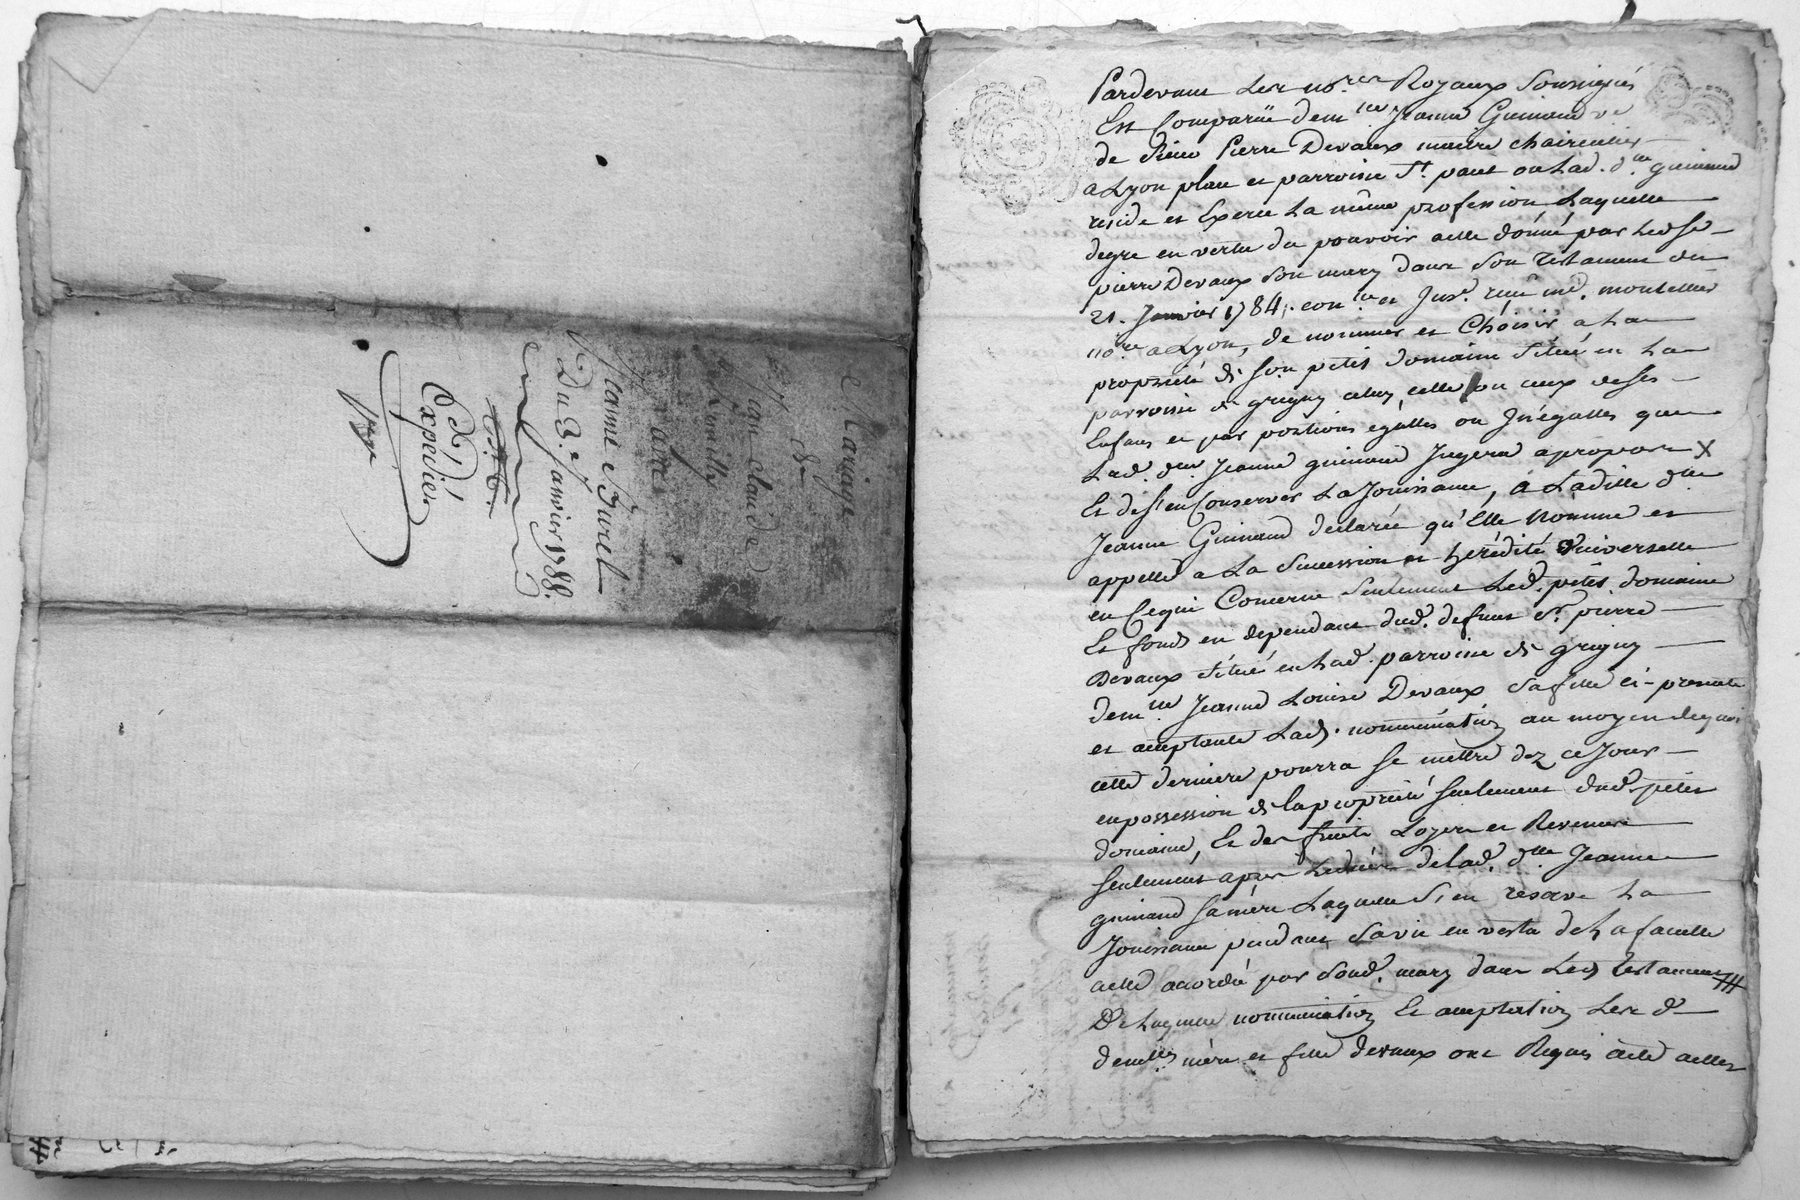 Mariage
de
Jean claude
Avec
Jeanne Furet
Du 3. Janvier 1788.
Expedié
Pardevant Les no.res Royaux Soussignés
Est Comparüe dem.lle Jeanne Guinand v.e
de Sieur Pierre Devaux maitre chaircutier
a Lyon place et parroisse S.t paul ou Lad. d.lle guinand
reside et Exerce La même profession Laquelle
degré en vertu du pouvoir a elle donné par Led. Sr
pierre Devaux Son mary dans Son testament du
21. Janvier 1784. reçu m.e montellier
no.re a Lyon, de nommer et Choisir a La
propriété de Son petit domaine Situé en La
parroisse de grigny celuy, celle ou ceux de Ses
Enfans et par portions égalles ou Inégalles que
Lad. d.lle Jeanne guinand Jugera apropos X
Et de S'en Conserver La Jouissance, a Laditte d.lle
Jeanne Guinand declarée qu'Elle Nomme et
appelle a La Succession et hérédité Universelle
en Cequi Concerne Seulement Led. petit domaine
Et fonds en dependant dud. defunt S.r pierre
Devaux Situé en Lad. parroisse de grigny
dem.lle Jeanne Louise Devaux Sa fille ci-presente
et acceptante Lad. nomination au moyen dequoi
cette derniere pourra Se mettre dez ce Jour
en possession de la propriété Seulement dud. petit
domaine, Et des fruits Loyers et Revenus
Seulement apres Ledécès de Lad. d.lle Jeanne
guinand Sa mère Laquelle S'en reserve La
Jouissance pendant Sa vie en vertu de La faculté
a elle accordée par Sond. mary dans Led. testament #
De Laquelle nomination Et acceptation Les d.
demlles mère et fille devaux ont Requis acte a elles